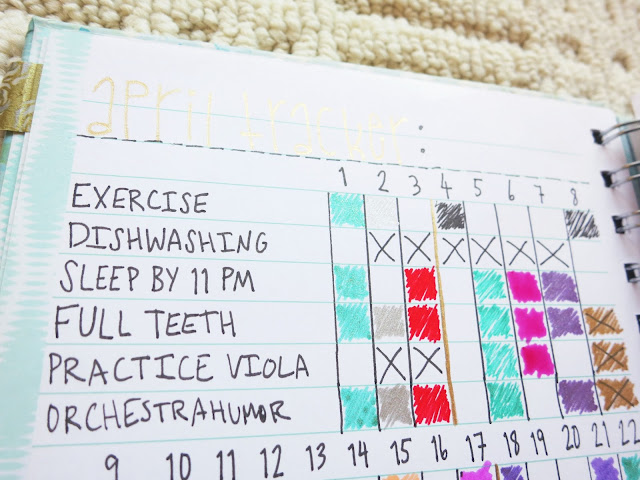 april tracker:
1 2 3 4 5 6 7 8
EXERCISE
DISHWASHING X X X X X X
SLEEP BY 11 PM
FULL TEETH X
PRACTICE VIOLA X X X
ORCHESTRAHUMOR X
9 10 11 12 13 14 15 16 17 18 19 20 21 22